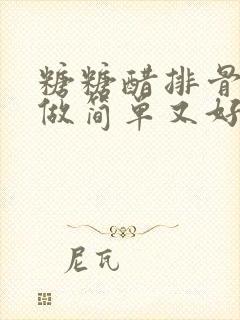 糖糖醋排骨
做简单又好
尼瓦